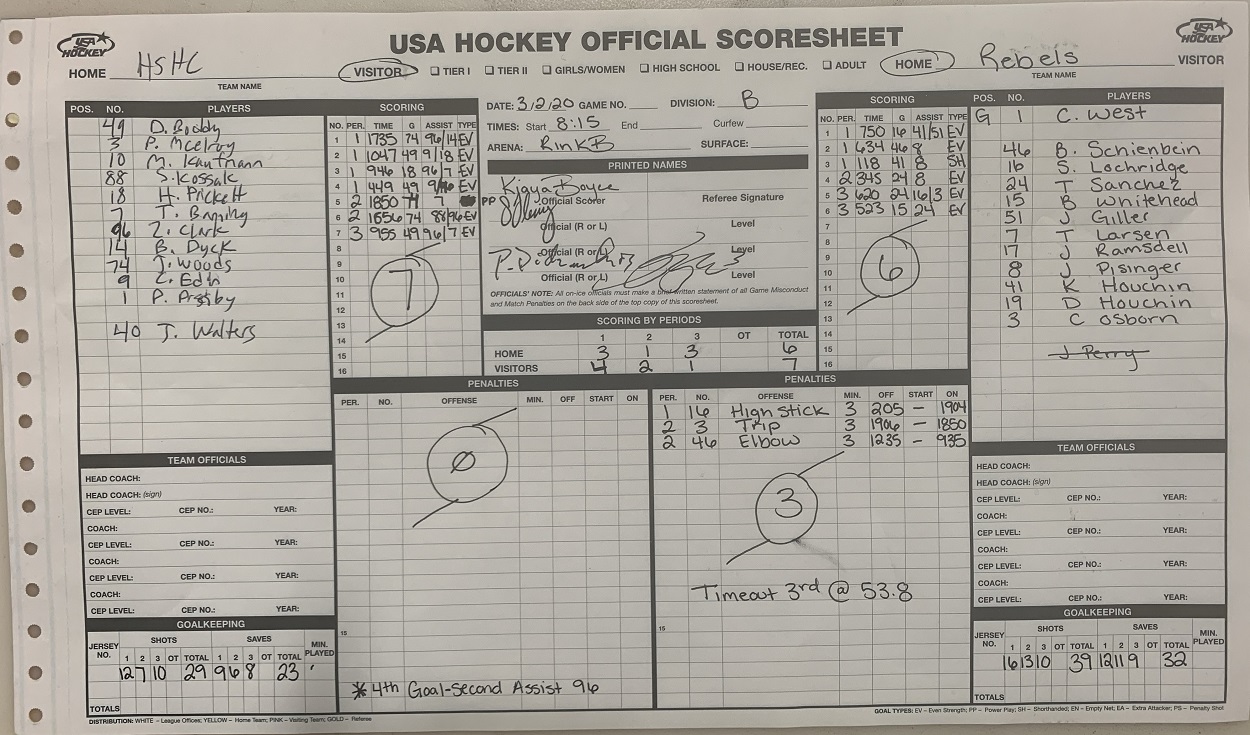 USA HOCKEY
USA HOCKEY OFFICIAL SCORESHEET
USA HOCKEY
HOME HSHC
TEAM NAME
VISITOR ☐ TIER I ☐ TIER II ☐ GIRLS/WOMEN ☐ HIGH SCHOOL ☐ HOUSE/REC. ☐ ADULT HOME
Rebels VISITOR
TEAM NAME
POS. NO. PLAYERS
49 D. Boddy
3 P. Mcelroy
10 M. Kaufmann
88 S. Kossak
18 H. Prickett
7 T.
96 Z. Clark
14 B. Dyck
74 J. Woods
9 Z. Edn
1 P.
40 J. Walters
SCORING
NO. PER. TIME G ASSIST TYPE
1 1 1735 74 96/14 EV
2 1 1047 49 9/18 EV
3 1 946 18 96/7 EV
4 1 449 49 EV
5 2 1850 74 7 PP
6 2 1656 74 88/96 EV
7 3 955 49 96/7 EV
8
9
10
11
12
13
14
15
16
7
DATE: 3/2/20 GAME NO. DIVISION: B
TIMES: Start 8:15 End Curfew
ARENA: Rink B SURFACE:
PRINTED NAMES
Kiaya Boyce
Official Scorer Referee Signature
Official (R or L) Level
Official (R or L) Level
Official (R or L) Level
OFFICIALS' NOTE: All on-ice officials must make a brief written statement of all Game Misconduct
and Match Penalties on the back side of the top copy of this scoresheet.
SCORING BY PERIODS
1 2 3 OT TOTAL
HOME 3 1 3 6
VISITORS 4 2 1 7
SCORING
NO. PER. TIME G ASSIST TYPE
1 1 750 16 41/51 EV
2 1 634 46 8 EV
3 1 118 41 8 SH
4 2 345 24 8 EV
5 3 620 24 16/3 EV
6 3 523 15 24 EV
7
8
9
10
11
12
13
14
15
16
6
POS. NO. PLAYERS
G 1 C. West
46 B. Schienbein
16 S. Lochridge
24 T Sanchez
15 B Whitehead
51 J. Giller
7 T Larsen
17 J Ramsdell
8 J Pisinger
41 K Houchin
19 D Houchin
3 C Osborn
J Perry
PENALTIES
PER. NO. OFFENSE MIN. OFF START ON
Ø
15
* 4th Goal-Second Assist 96
PENALTIES
PER. NO. OFFENSE MIN. OFF START ON
1 16 High Stick 3 205 – 1904
2 3 Trip 3 1906 – 1850
2 46 Elbow 3 1235 – 935
3
Timeout 3rd @ 53.8
15
TEAM OFFICIALS
HEAD COACH:
HEAD COACH: (sign)
CEP LEVEL: CEP NO.: YEAR:
COACH:
CEP LEVEL: CEP NO.: YEAR:
COACH:
CEP LEVEL: CEP NO.: YEAR:
COACH:
CEP LEVEL: CEP NO.: YEAR:
GOALKEEPING
JERSEY NO. SHOTS SAVES MIN. PLAYED
1 2 3 OT TOTAL 1 2 3 OT TOTAL
12 7 10 29 9 6 8 23
TOTALS
TEAM OFFICIALS
HEAD COACH:
HEAD COACH: (sign)
CEP LEVEL: CEP NO.: YEAR:
COACH:
CEP LEVEL: CEP NO.: YEAR:
COACH:
CEP LEVEL: CEP NO.: YEAR:
COACH:
CEP LEVEL: CEP NO.: YEAR:
GOALKEEPING
JERSEY NO. SHOTS SAVES MIN. PLAYED
1 2 3 OT TOTAL 1 2 3 OT TOTAL
16 13 10 39 12 11 9 32
TOTALS
DISTRIBUTION: WHITE – League Offices; YELLOW – Home Team; PINK – Visiting Team; GOLD – Referee
GOAL TYPES: EV – Even Strength; PP – Power Play; SH – Shorthanded; EN – Empty Net; EA – Extra Attacker; PS – Penalty Shot